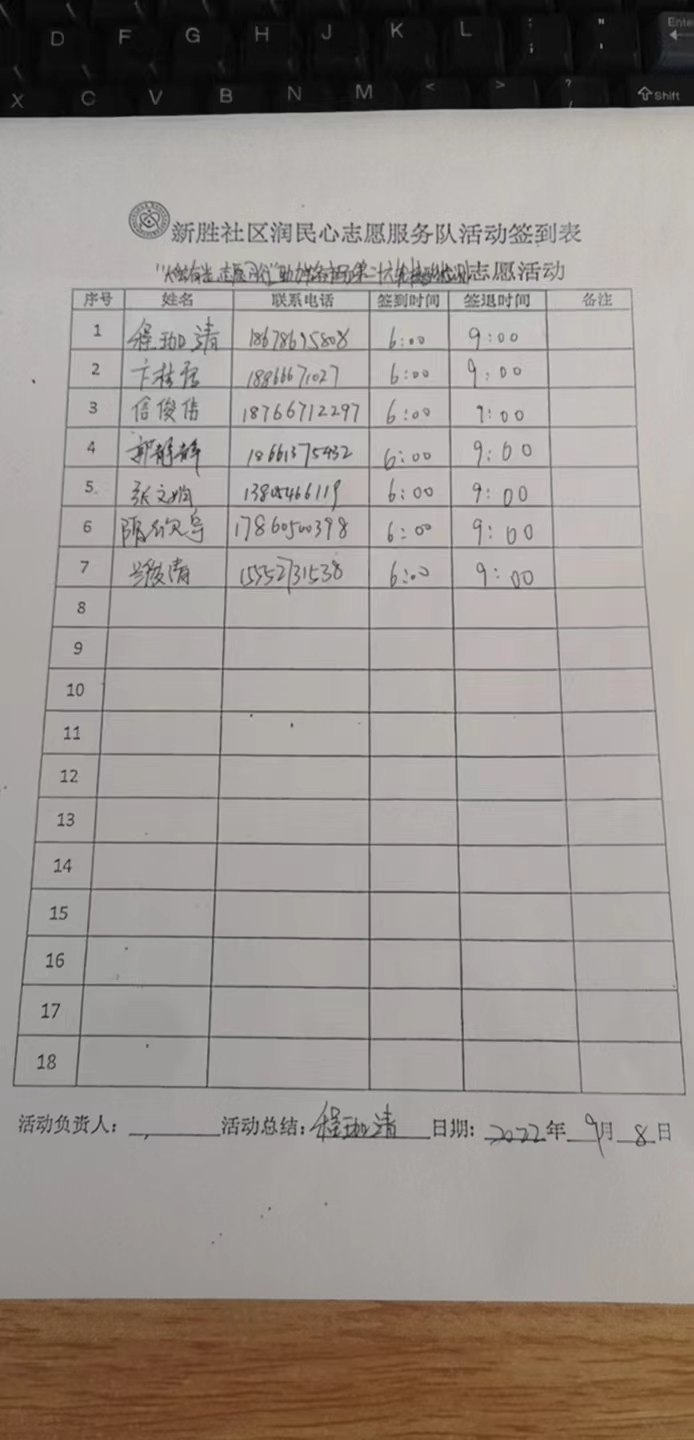 D F G H J K L : ; " ' Enter
X C V B N M < > ? / Shift
新胜社区润民心志愿服务队活动签到表
志愿活动
序号 姓名 联系电话 签到时间 签退时间 备注
1 程珈清 18678695808 6:00 9:00
2 18866671027 6:00 9:00
3 信俊伟 18766712297 6:00 9:00
4 郭静静 18661375432 6:00 9:00
5 张文娟 13805466119 6:00 9:00
6 隋欣宇 17860500398 6:00 9:00
7 15552731538 6:00 9:00
8
9
10
11
12
13
14
15
16
17
18
活动负责人: 活动总结: 程珈清 日期: 2022年 9月 8日